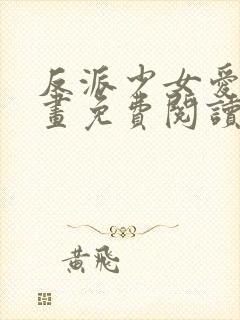 反派少女愛
畫免費閱讀
黃飛